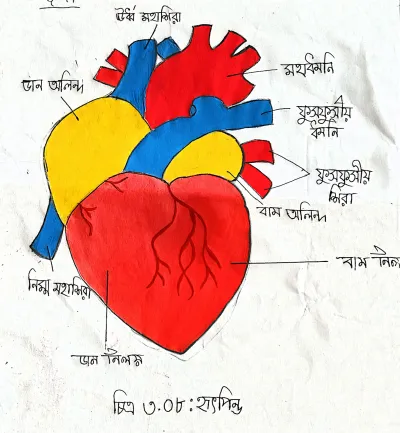 ঊর্ধ্ব মহাশিরা
ডান অলিন্দ
মহাধমনি
ফুসফুসীয়
ধমনি
ফুসফুসীয়
শিরা
বাম অলিন্দ
বাম নিল
নিম্ন মহাশিরা
ডান নিলয়
চিত্র ৩.০৮: হৃৎপিন্ড